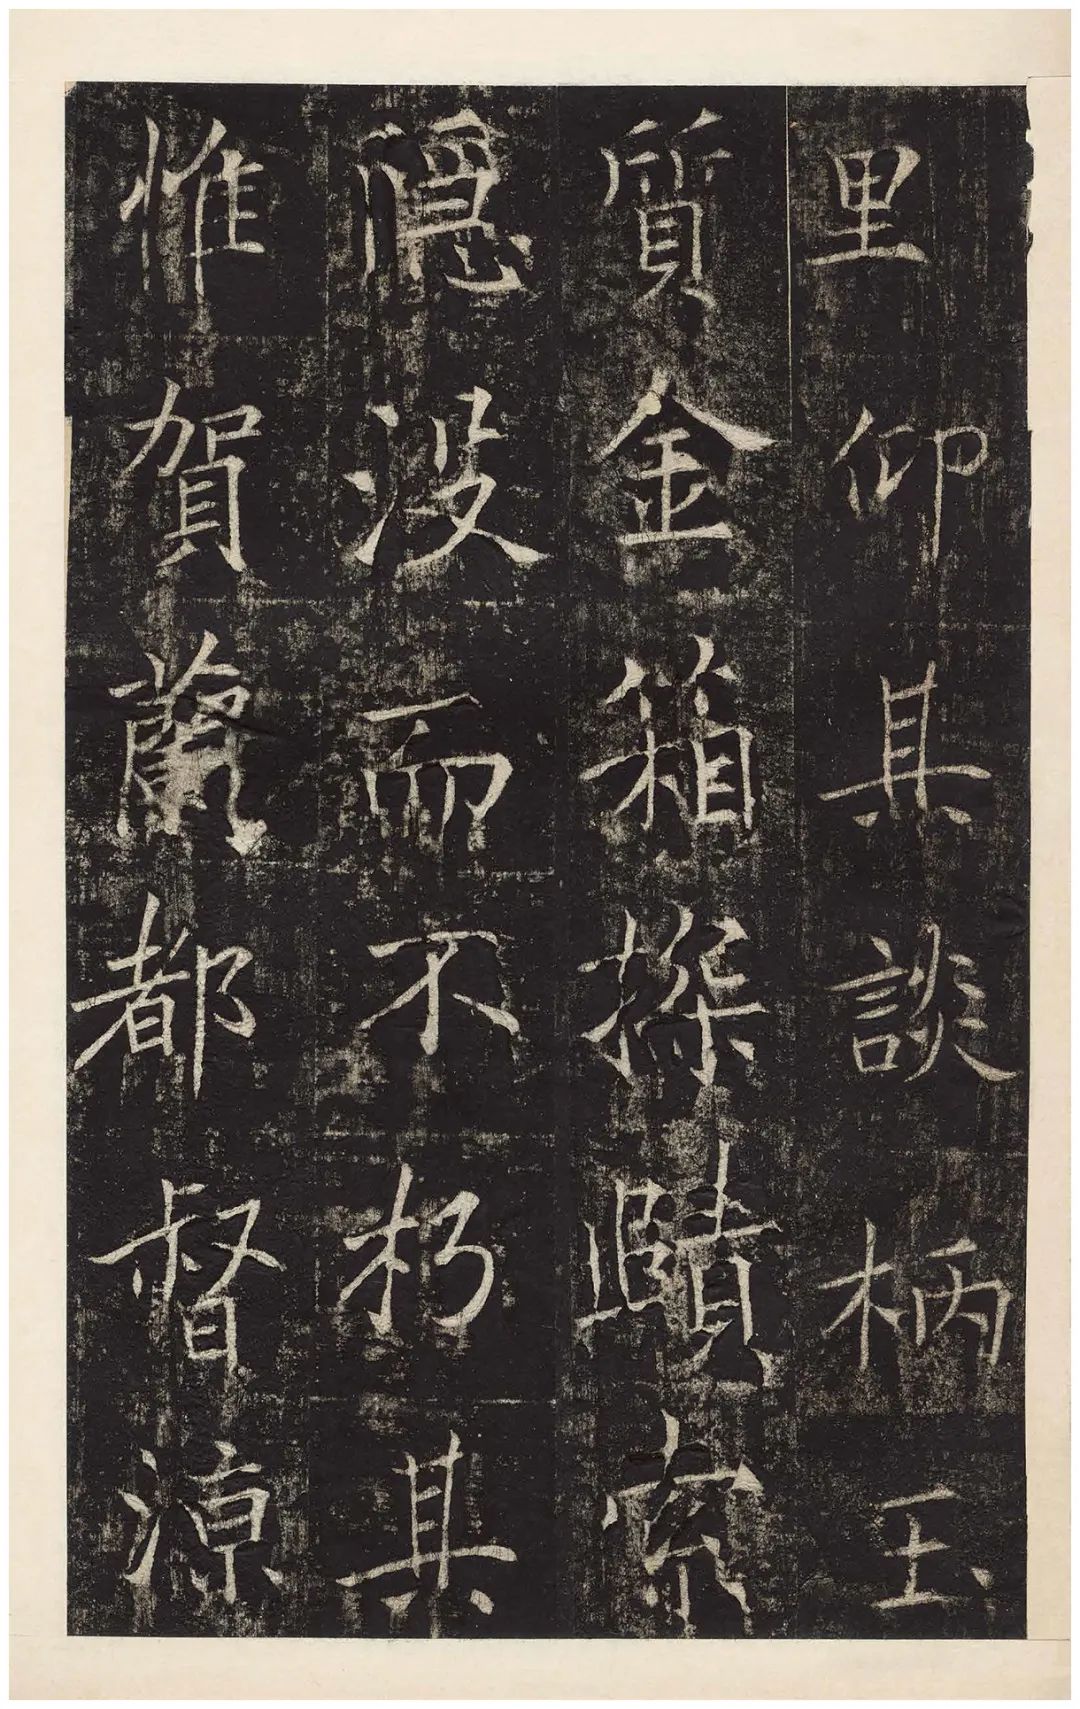 里仰其談柄玉
質金箱探賾索
隱没而不朽其
惟賀蘭都督源